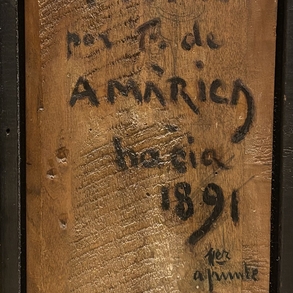 por T. de
AMÁRICA
hacia
1891
1er
apunte